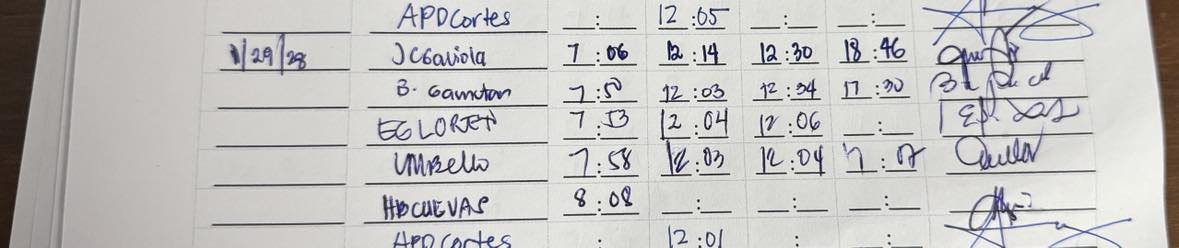 APDCortes __:__ 12:05 __:__ __:__
1/29/28 JCGaviola 7:06 12:14 12:30 18:46
B. Gamutan 7:50 12:03 12:34 17:30
EGLORJEN 7:53 12:04 12:06 __:__
UMBello 7:58 12:03 12:04 17:07
HBCUEVAS 8:08 __:__ __:__ __:__
APDCortes : 12:01 : :